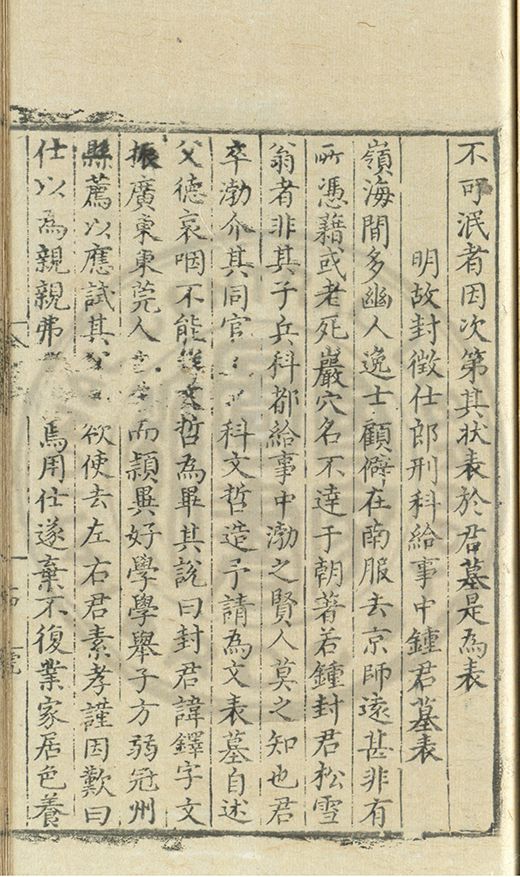 不可泯者因次第其狀表於君墓是為表
明故封徵仕郎刑科給事中鍾君墓表
嶺海間多幽人逸士顧僻在南服去京師遠甚非有
所憑藉或老死巖穴名不達于朝著若鍾封君松雪
翁者非其子兵科都給事中渤之賢人莫之知也君
卒渤介其同官科文哲造予請為文表墓自述
父德哀咽不能文哲為畢其說曰封君諱鐸字文
振廣東東莞人而穎異好學學舉子方弱冠州
縣薦以應試其欲使去左右君素孝謹因歎曰
仕以為親親弗焉用仕遂棄不復業家居色養